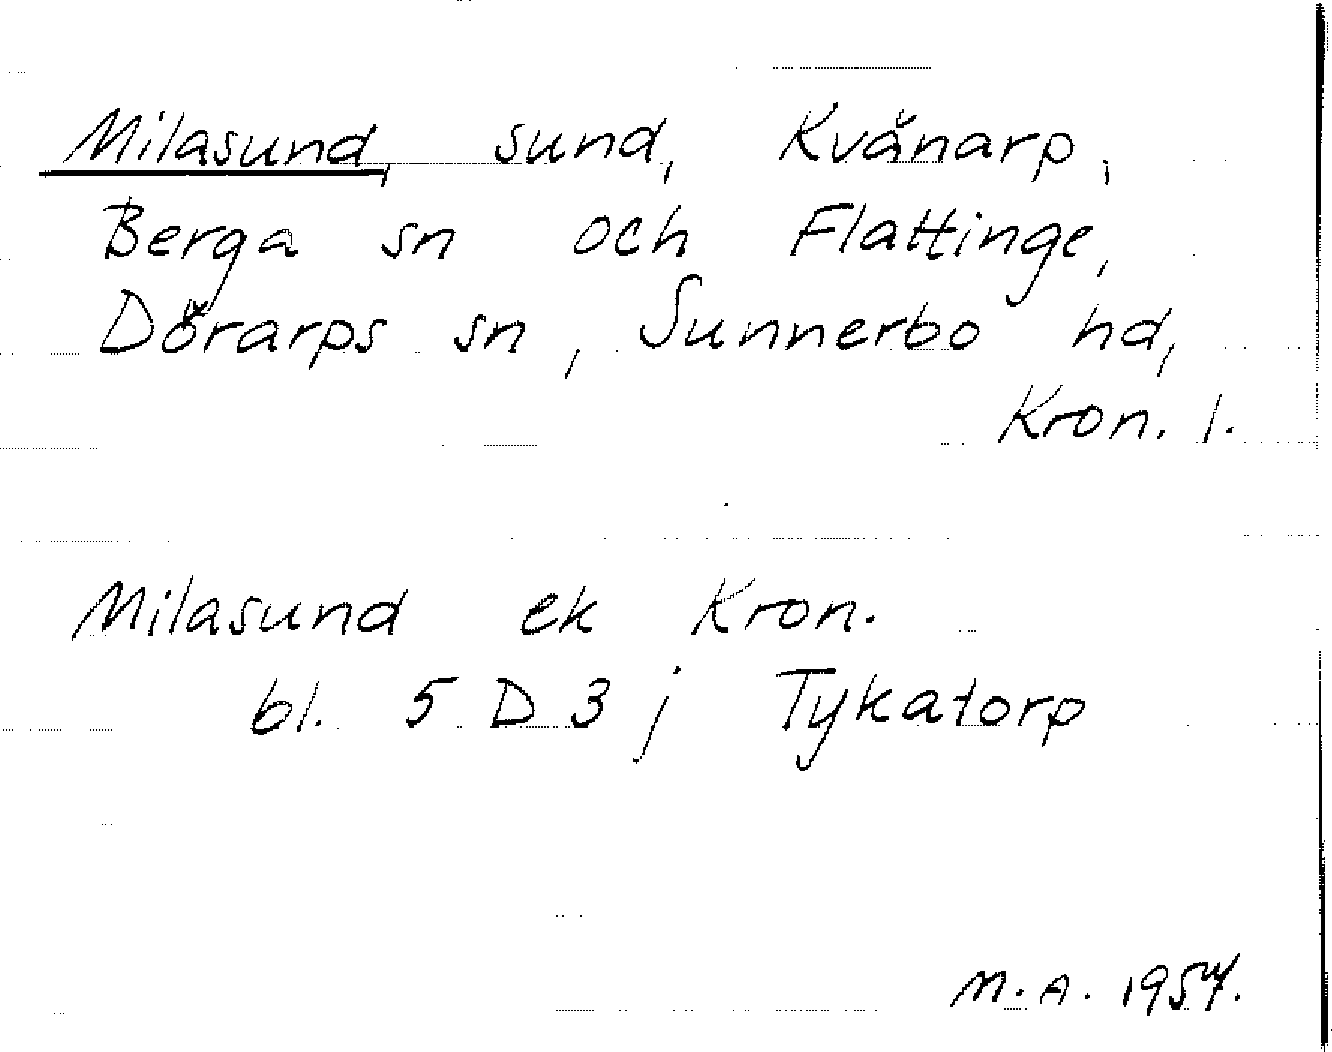 Milasund, sund, Kvånarp,
Berga sn och Flattinge,
Dörarps sn, Sunnerbo hd,
Kron. l.
Milasund ek Kron.
bl. 5 D 3 j Tykatorp
M.A. 1957.